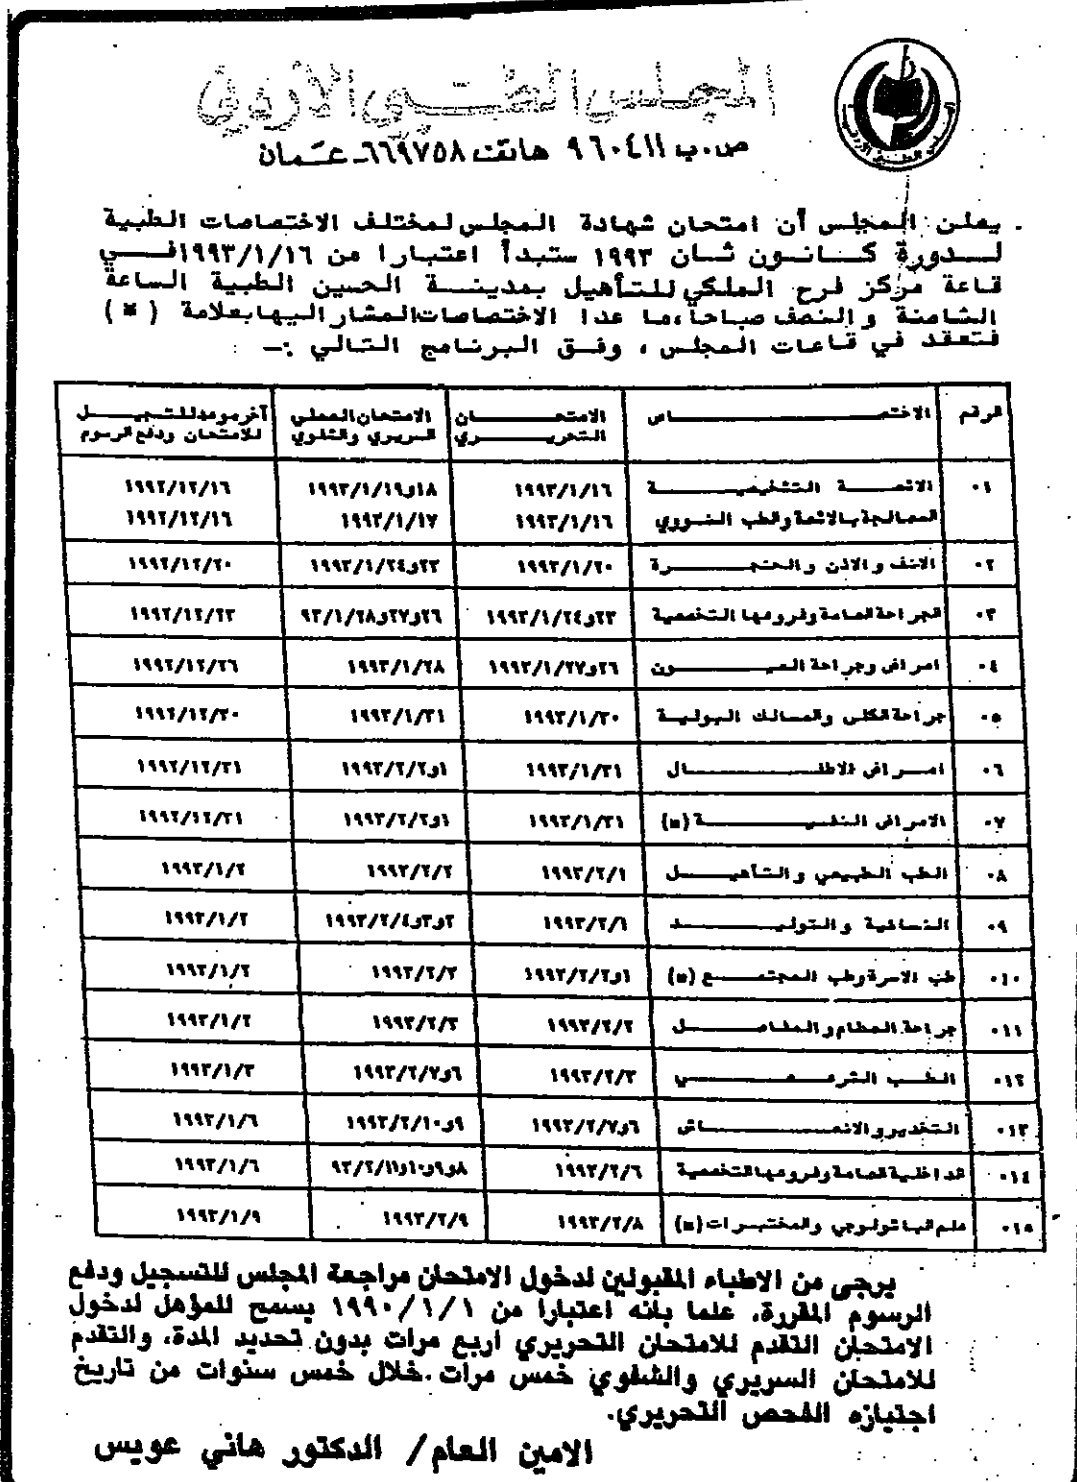 المجلس الطبي الأردني
ص.ب ٩٦٠٤١١ هاتف ٦٦٩٧٥٨ـ عمّان
يعلن المجلس أن امتحان شهادة المجلس لمختلف الاختصاصات الطبية
لدورة كانون ثان ١٩٩٣ ستبدأ اعتبارا من ١٩٩٣/١/١٦ في
قاعة مركز فرح الملكي للتأهيل بمدينة الحسين الطبية الساعة
الثامنة والنصف صباحا، ما عدا الاختصاصات المشار اليها بعلامة (*)
فتعقد في قاعات المجلس ، وفق البرنامج التالي :ـ
الرقم الاختصاص الامتحان التحريري الامتحان العملي السريري والشفوي آخر موعد للتسجيل للامتحان ودفع الرسوم
٠١ الاشعة التشخيصية ١٩٩٣/١/١٦ ١٨و١٩٩٣/١/١٩ ١٩٩٢/١٢/١٦
المعالجة بالاشعة والطب النووي ١٩٩٣/١/١٦ ١٩٩٣/١/١٧ ١٩٩٢/١٢/١٦
٠٢ الانف والاذن والحنجرة ١٩٩٣/١/٢٠ ٢٣و١٩٩٣/١/٢٤ ١٩٩٢/١٢/٢٠
٠٣ الجراحة العامة وفروعها التخصصية ٢٣و١٩٩٣/١/٢٤ ٢٦و٢٧و٩٣/١/٢٨ ١٩٩٢/١٢/٢٣
٠٤ امراض وجراحة العيون ٢٦و١٩٩٣/١/٢٧ ١٩٩٣/١/٢٨ ١٩٩٢/١٢/٢٦
٠٥ جراحة الكلى والمسالك البولية ١٩٩٣/١/٣٠ ١٩٩٣/١/٣١ ١٩٩٢/١٢/٣٠
٠٦ امراض الاطفال ١٩٩٣/١/٣١ ١و١٩٩٣/٢/٢ ١٩٩٢/١٢/٣١
٠٧ الامراض النفسية (*) ١٩٩٣/١/٣١ ١و١٩٩٣/٢/٢ ١٩٩٢/١٢/٣١
٠٨ الطب الطبيعي والتأهيل ١٩٩٣/٢/١ ١٩٩٣/٢/٢ ١٩٩٣/١/٢
٠٩ النسائية والتوليد ١٩٩٣/٢/٦ ٢و٣و١٩٩٣/٢/٤ ١٩٩٣/١/٢
٠١٠ طب الاسرة وطب المجتمع (*) ١و١٩٩٣/٢/٢ ١٩٩٣/٢/٣ ١٩٩٣/١/٢
٠١١ جراحة العظام والمفاصل ١٩٩٣/٢/٢ ١٩٩٣/٢/٣ ١٩٩٣/١/٢
٠١٢ الطب الشرعي ١٩٩٣/٢/٣ ٦و١٩٩٣/٢/٧ ١٩٩٣/١/٣
٠١٣ التخدير والانعاش ٦و١٩٩٣/٢/٧ ٩و١٩٩٣/٢/١٠ ١٩٩٣/١/٦
٠١٤ الداخلية العامة وفروعها التخصصية ١٩٩٣/٢/٦ ٨و٩و١٠و٩٣/٢/١١ ١٩٩٣/١/٦
٠١٥ علم الباثولوجي والمختبرات (*) ١٩٩٣/٢/٨ ١٩٩٣/٢/٩ ١٩٩٣/١/٩
يرجى من الاطباء المقبولين لدخول الامتحان مراجعة المجلس للتسجيل ودفع
الرسوم المقررة، علما بانه اعتبارا من ١٩٩٠/١/١ يسمح للمؤهل لدخول
الامتحان التقدم للامتحان التحريري اربع مرات بدون تحديد المدة، والتقدم
للامتحان السريري والشفوي خمس مرات خلال خمس سنوات من تاريخ
اجتيازه الفحص التحريري.
الامين العام/ الدكتور هاني عويس